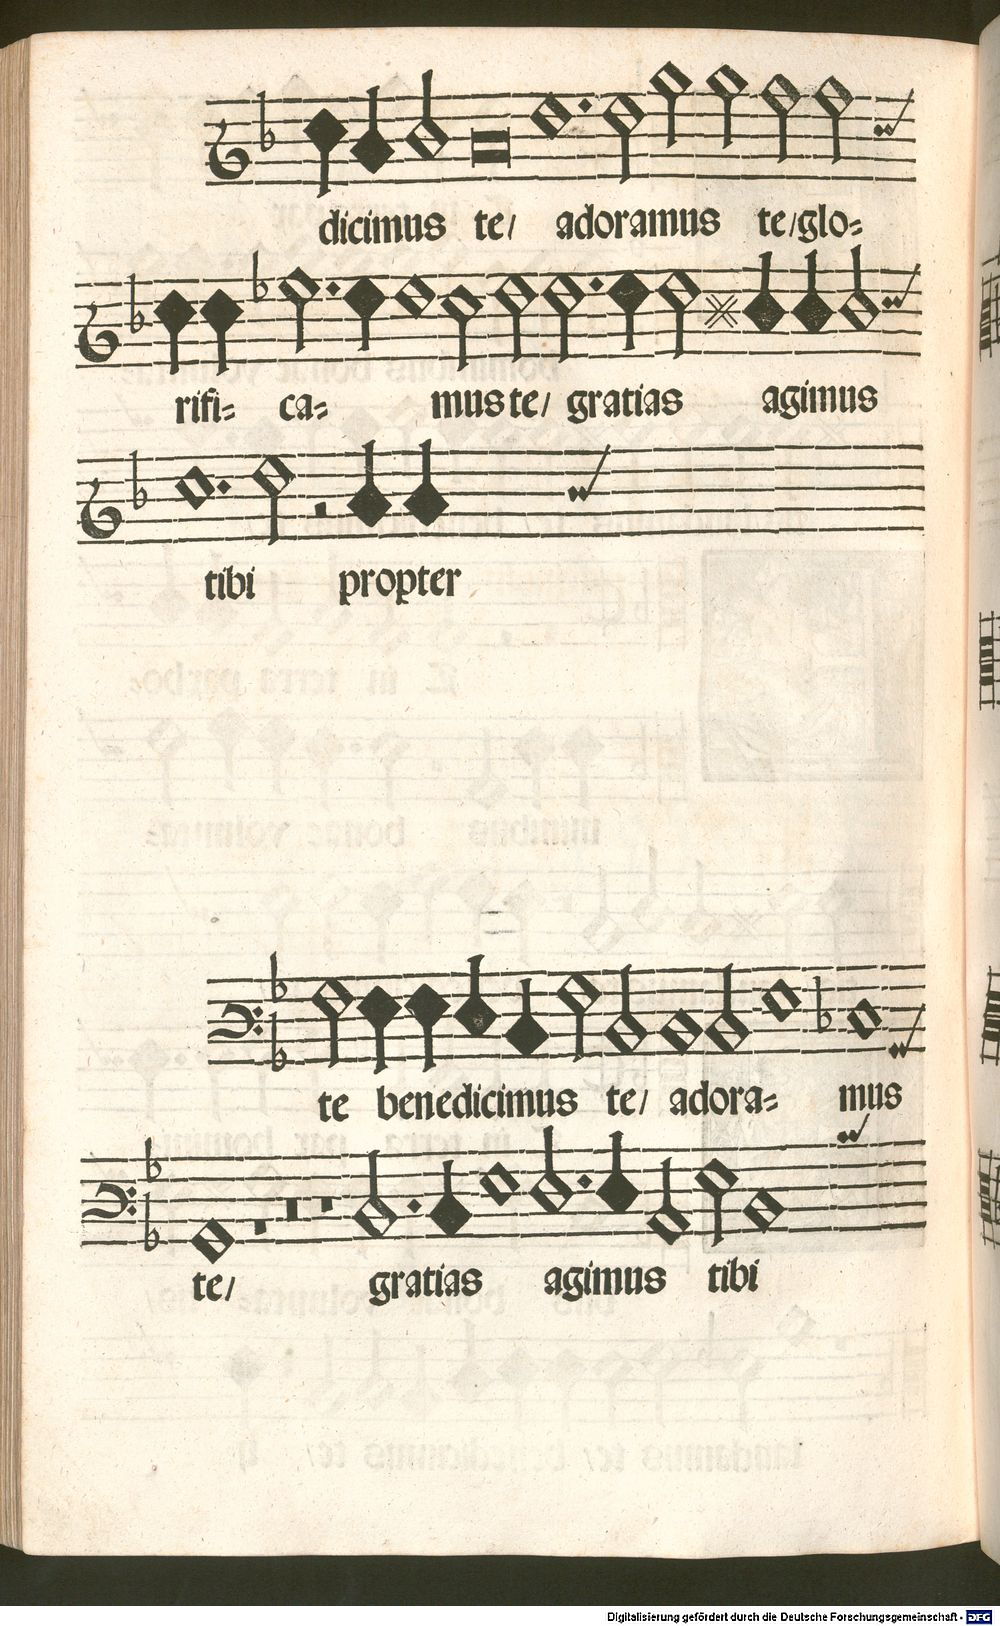 dicimus te/ adoramus te/glo=
rifi= ca= mus te/ gratias agimus
tibi propter
te benedicimus te/ adora= mus
te/ gratias agimus tibi
Digitalisierung gefördert durch die Deutsche Forschungsgemeinschaft - DFG